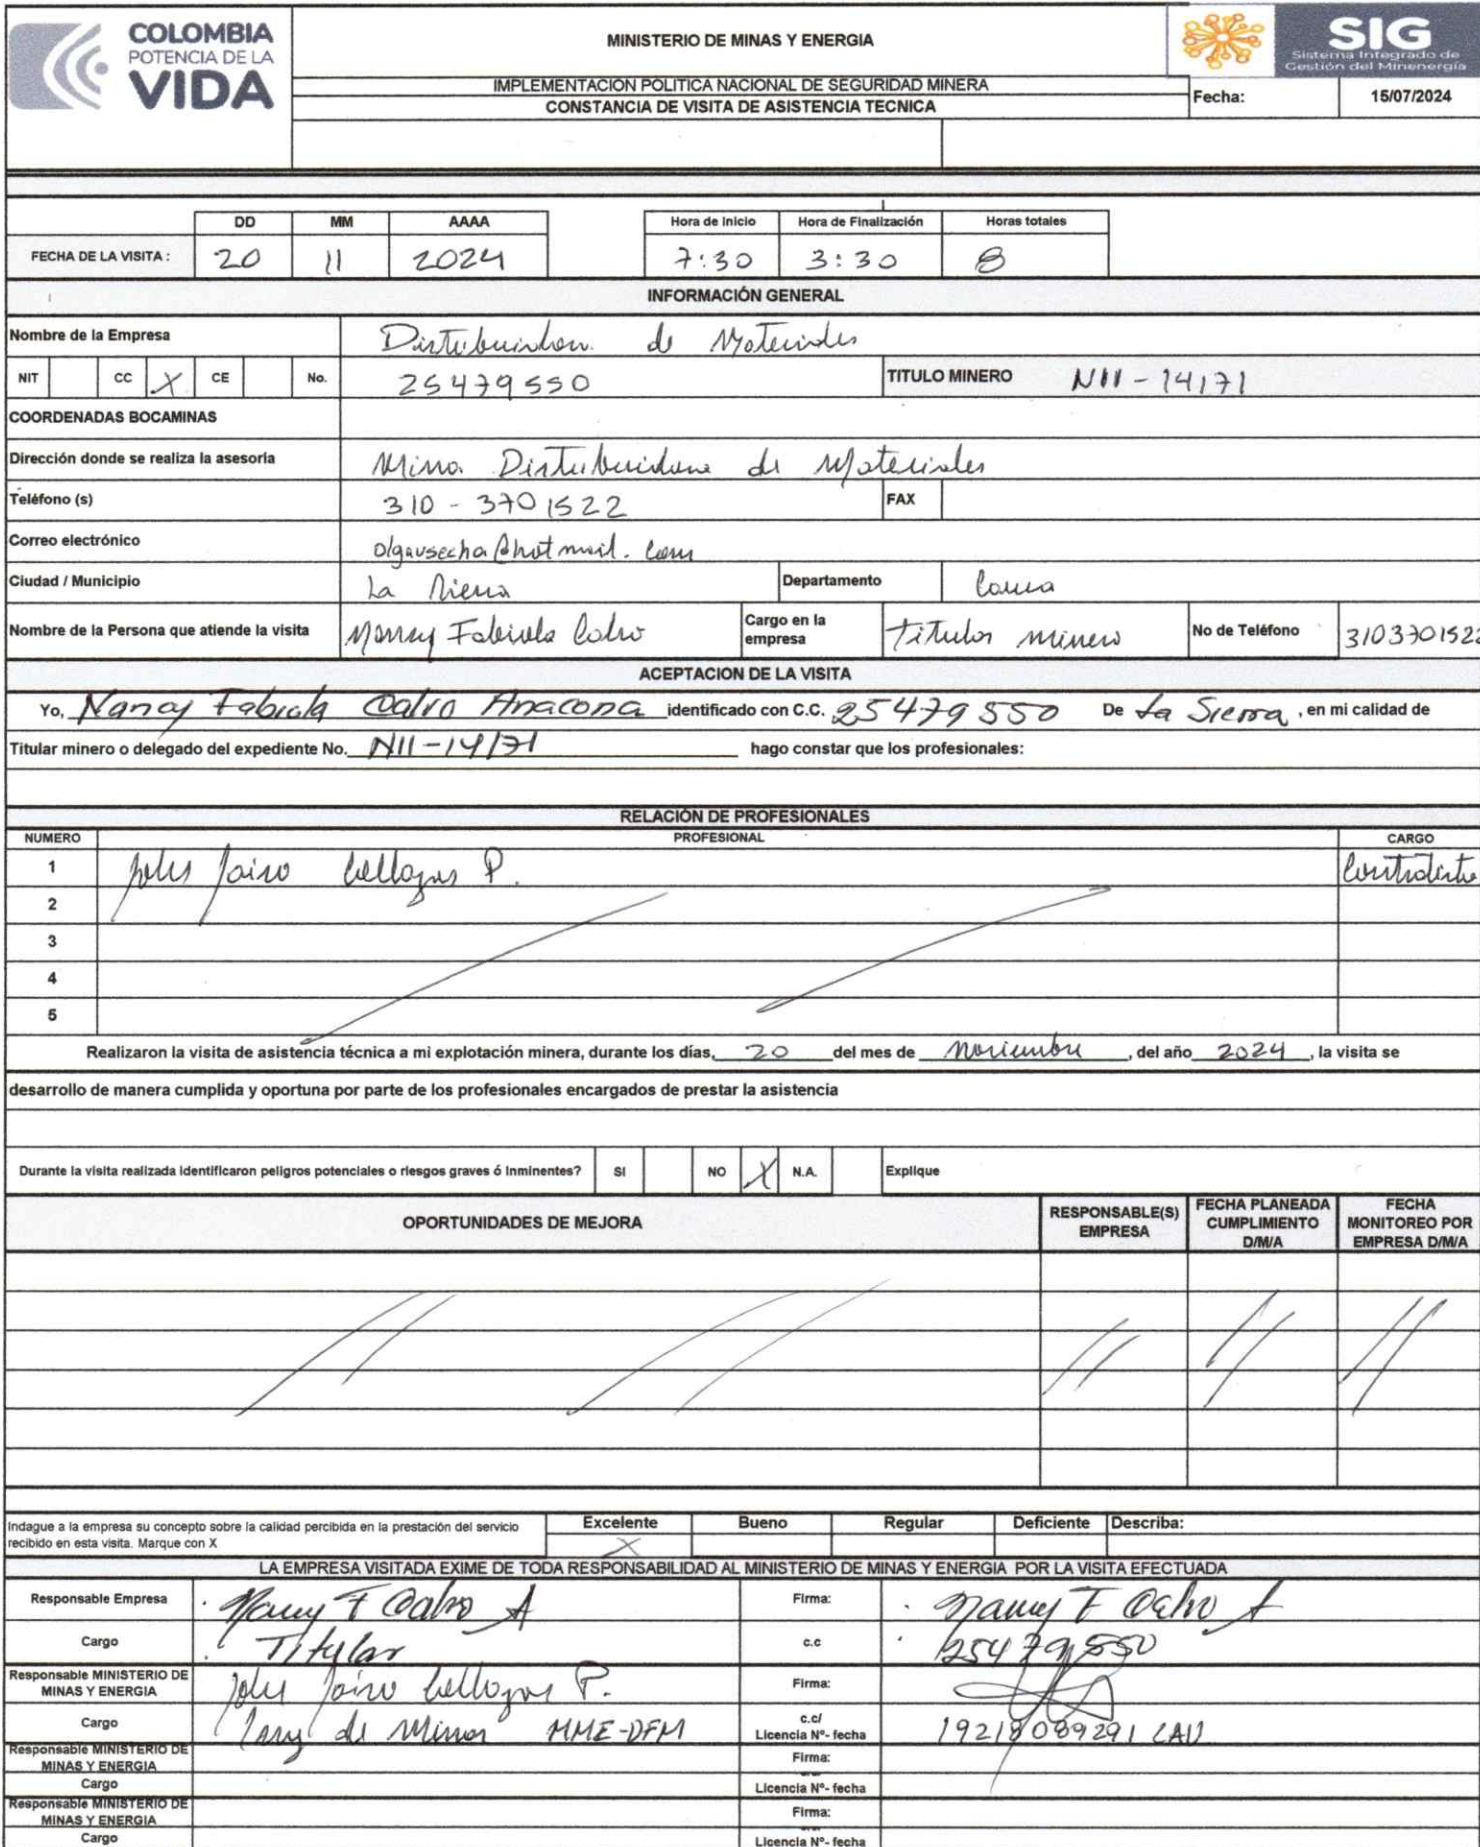 COLOMBIA
POTENCIA DE LA
VIDA
MINISTERIO DE MINAS Y ENERGIA
SIG
Sistema Integrado de
Gestión del Minenergía
IMPLEMENTACION POLITICA NACIONAL DE SEGURIDAD MINERA
CONSTANCIA DE VISITA DE ASISTENCIA TECNICA
Fecha: 15/07/2024
DD MM AAAA Hora de Inicio Hora de Finalización Horas totales
FECHA DE LA VISITA : 20 11 2024 7:30 3:30 8
INFORMACIÓN GENERAL
Nombre de la Empresa de Materiales
NIT CC X CE No. 25479550 TITULO MINERO NII-14171
COORDENADAS BOCAMINAS
Dirección donde se realiza la asesoria Mina Distribuidora de Materiales
Teléfono (s) 310 - 3701522 FAX
Correo electrónico olgausecha@hotmail.com
Ciudad / Municipio La Sierra Departamento Cauca
Nombre de la Persona que atiende la visita Nancy Fabiola Calvo Cargo en la empresa Titular minero No de Teléfono 3103701522
ACEPTACION DE LA VISITA
Yo, Nancy Fabiola Calvo Anacona identificado con C.C. 25479550 De La Sierra, en mi calidad de
Titular minero o delegado del expediente No. NII-14171 hago constar que los profesionales:
RELACIÓN DE PROFESIONALES
NUMERO PROFESIONAL CARGO
1 Jairo P. Contratista
2
3
4
5
Realizaron la visita de asistencia técnica a mi explotación minera, durante los días, 20 del mes de Noviembre, del año 2024, la visita se
desarrollo de manera cumplida y oportuna por parte de los profesionales encargados de prestar la asistencia
Durante la visita realizada identificaron peligros potenciales o riesgos graves ó inminentes? SI NO X N.A. Explique
OPORTUNIDADES DE MEJORA RESPONSABLE(S) EMPRESA FECHA PLANEADA CUMPLIMIENTO D/M/A FECHA MONITOREO POR EMPRESA D/M/A
Indague a la empresa su concepto sobre la calidad percibida en la prestación del servicio Excelente Bueno Regular Deficiente Describa:
recibido en esta visita. Marque con X X
LA EMPRESA VISITADA EXIME DE TODA RESPONSABILIDAD AL MINISTERIO DE MINAS Y ENERGIA POR LA VISITA EFECTUADA
Responsable Empresa Nancy F Calvo A Firma: Nancy F Calvo A
Cargo Titular c.c 25479550
Responsable MINISTERIO DE MINAS Y ENERGIA Jairo P. Firma:
Cargo Ing de Minas MME-DFM c.c/ Licencia Nº- fecha 19218089291 CAU
Responsable MINISTERIO DE MINAS Y ENERGIA Firma:
Cargo Licencia Nº- fecha
Responsable MINISTERIO DE MINAS Y ENERGIA Firma:
Cargo Licencia Nº- fecha